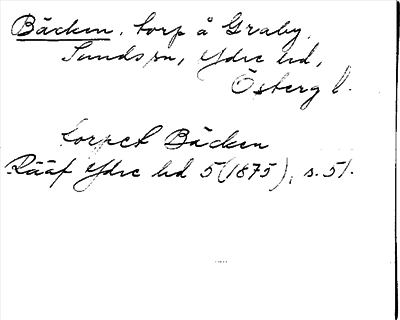 Bäcken, torp å Graby,
Sunds sn, Ydre hd,
Österg l.
torpet Bäcken
Rääf Ydre hd 5 (1875), s. 51.